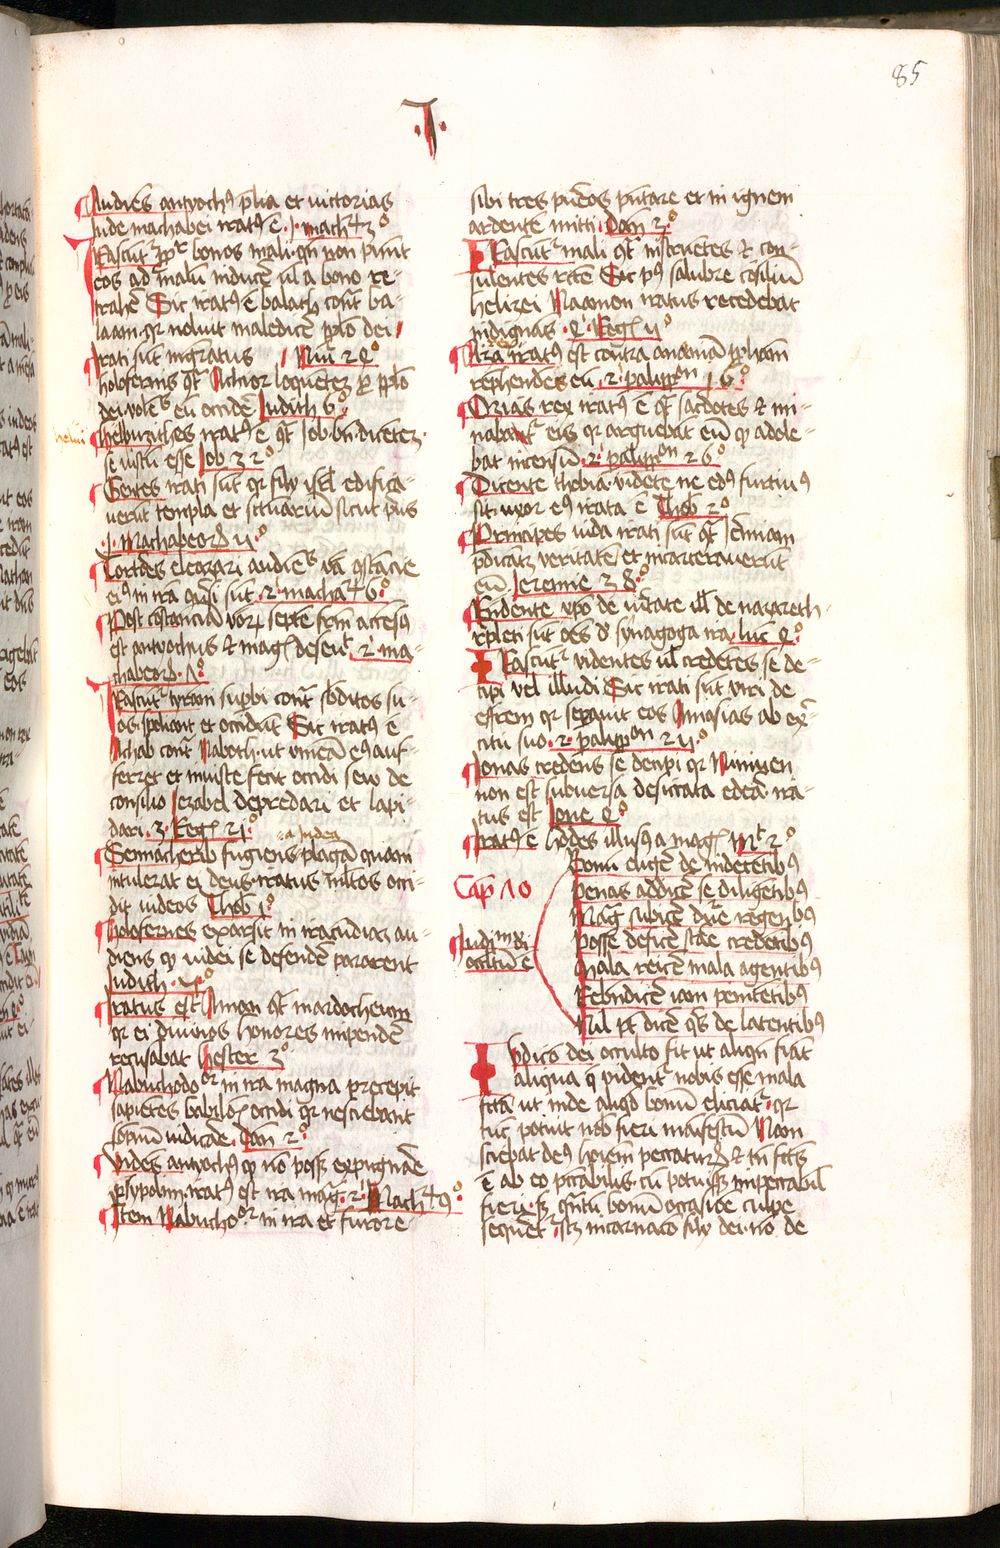 85
.I.
Audiens antyochus prelia et victorias
Iude machabei iratus est .1. mach. 3º
Irascuntur propter bonos mali qn non possunt
eos ad malum inducere vel a bono re-
trahere Sic iratus est balach contra ba-
laam qr noluit maledicere populo dei
Irati sunt
Num 24º
holofernis Achior loquentem pro populo
dei volens eum occidere Iudith 6º
heliu
iratus est Iob dicentem
se iustum esse Iob 32º
Gentes irati sunt qr filii israel edifica-
verunt templa et sictuarium sicut prius
.1. Machabeorum 11º
Tortores eleazari audiens
eius in ira sunt .2. machab. 6º
Post constanciam septem accensus
est antyochus et magis deseuit .2. ma-
chabeorum .7º
Irascuntur tyranni superbi contra subditos su-
os spoliant et occidunt Sic iratus est
Achab contra Naboth ut vineam eius auf-
ferret et iniuste fecit occidi seu de
consilio Iezabel depredari et lapi-
dari .3. Regum 21º
a Iudea
Sennacherib fugiens plagam quam
intulerat ei deus iratus multos occi-
dit iudeos Thob 1º
Holofernes exarsit in iracundiam au-
diens quod iudei se defendere pararent
Iudith .5º
Iratus est Aman contra mardocheum
qr ei divinos honores impendere
recusabat hester 3º
Nabuchodor in ira magna precepit
sapientes babilonis occidi qr nesciebant
sompnium iudicare. Dan 2º
Videns antyochus quod non posset expugnare
persypolim iratus est ira magna .2. Mach. 9º
Item Nabuchor in ira et furore
sibi tres pueros presentare et in ignem
ardentem mitti. Dan 3º
Irascuntur mali contra instruentes et con-
sulentes recte Sic post salubre consilium
helizei Naamon iratus recedebat
indignans .4. Regum 5º
Aza rex iratus est contra ananiam prophetam
reprehendentem eum .2. paralippon 16º
Ozias rex iratus est contra sacerdotes et mi-
nabatur eis qr arguebant eum quod adole-
bat incensum .2. paralippon 26º
Dicente thobia videte ne edus furtivus
sit uxor eius irata est Thob 2º
Principes iuda irati sunt contra Ieremiam
predicantem veritatem et incarceraverunt
eum Ieremie 38º
Evidente christo de veritate illis de nazareth
repleti sunt omnes de synagoga ira. luc 4º
Irascuntur videntes vel credentes se de-
cipi vel illudi Sic irati sunt viri de
effrem qr separavit eos Amasias ab exer-
citu suo .2. paralippon 25º
Ionas credens se decipi qr Niniven
non est subversa desiccata edera ira-
tus est Ione 4º
Iratus est herodes illusus a magis Mt 2º
Cap 70
Iudicium dei
occultum est
Bonum eligere de indecentibus
Penas addicere se diligentibus
Magis subicere dure regentibus
Posse deficere stare credentibus
Mala reicere mala agentibus
Rebenedicere iam penitentibus
Nil potest dicere quis de latentibus
Iudicio dei occulto fit ut aliqn fiant
aliqua que videntur nobis esse mala
facta ut inde aliquod bonum eliciatur qr
tunc potuit nobis fieri manifestum Nam
sciebat deus hominem peccaturum et tamen factus
est ab eo peccabilis cum potuisset impeccabilis
fieri sed quantum bonum occasione culpe
sequeretur scilicet incarnacio filii dei non de